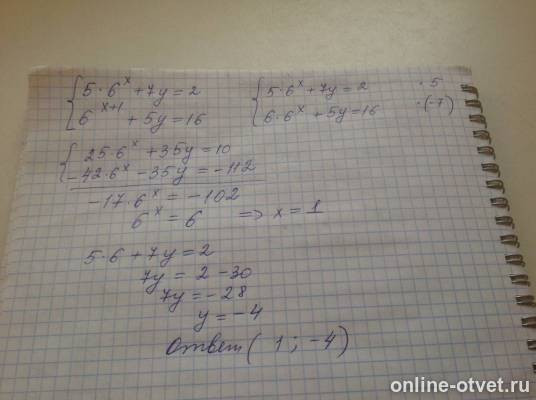 { 5·6^x + 7y = 2
6^(x+1) + 5y = 16
{ 5·6^x + 7y = 2 ·5
6·6^x + 5y = 16 ·(-7)
{ 25·6^x + 35y = 10
-42·6^x - 35y = -112
-17·6^x = -102
6^x = 6 => x = 1
5·6 + 7y = 2
7y = 2 - 30
7y = -28
y = -4
Ответ (1; -4)
online-otvet.ru